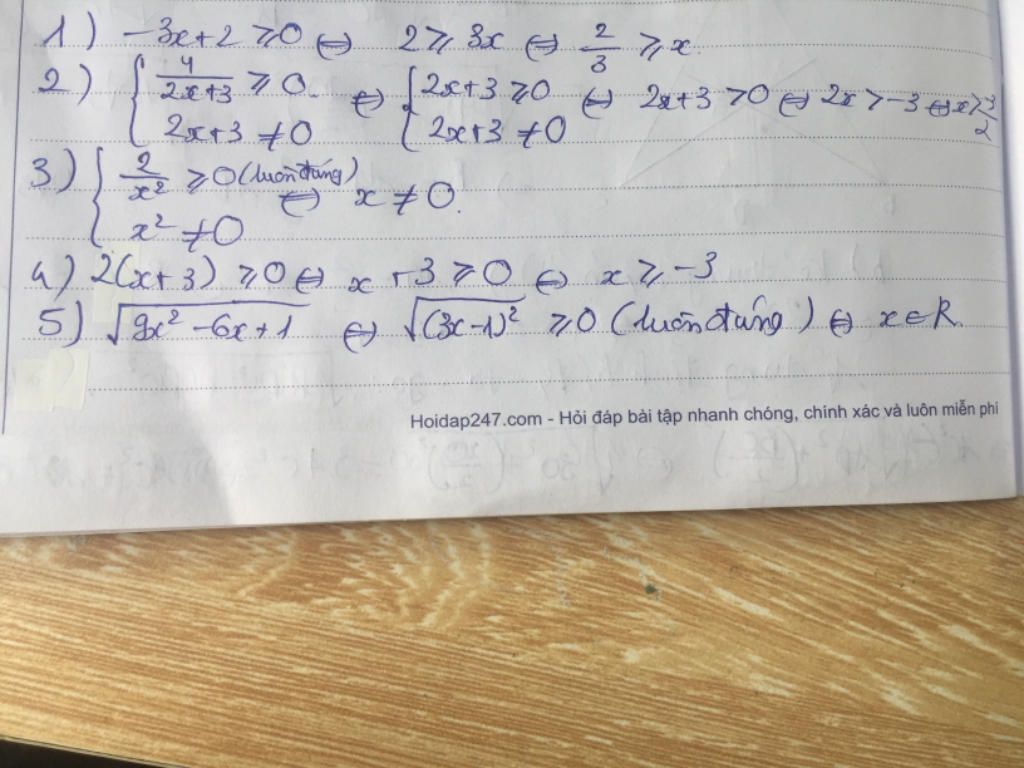 1) -3x+2 ≥ 0 ⇔ 2 ≥ 3x ⇔ 2/3 ≥ x
2) { 4/(2x+3) ≥ 0 ; 2x+3 ≠ 0 ⇔ { 2x+3 ≥ 0 ; 2x+3 ≠ 0 ⇔ 2x+3 > 0 ⇔ 2x > -3 ⇔ x >
3) { 2/x² ≥ 0 (luôn đúng) ; x² ≠ 0 ⇔ x ≠ 0.
4) 2(x+3) ≥ 0 ⇔ x+3 ≥ 0 ⇔ x ≥ -3
5) √(9x² - 6x + 1) ⇔ √((3x-1)²) ≥ 0 (luôn đúng) ⇔ x ∈ R.
Hoidap247.com - Hỏi đáp bài tập nhanh chóng, chính xác và luôn miễn phí